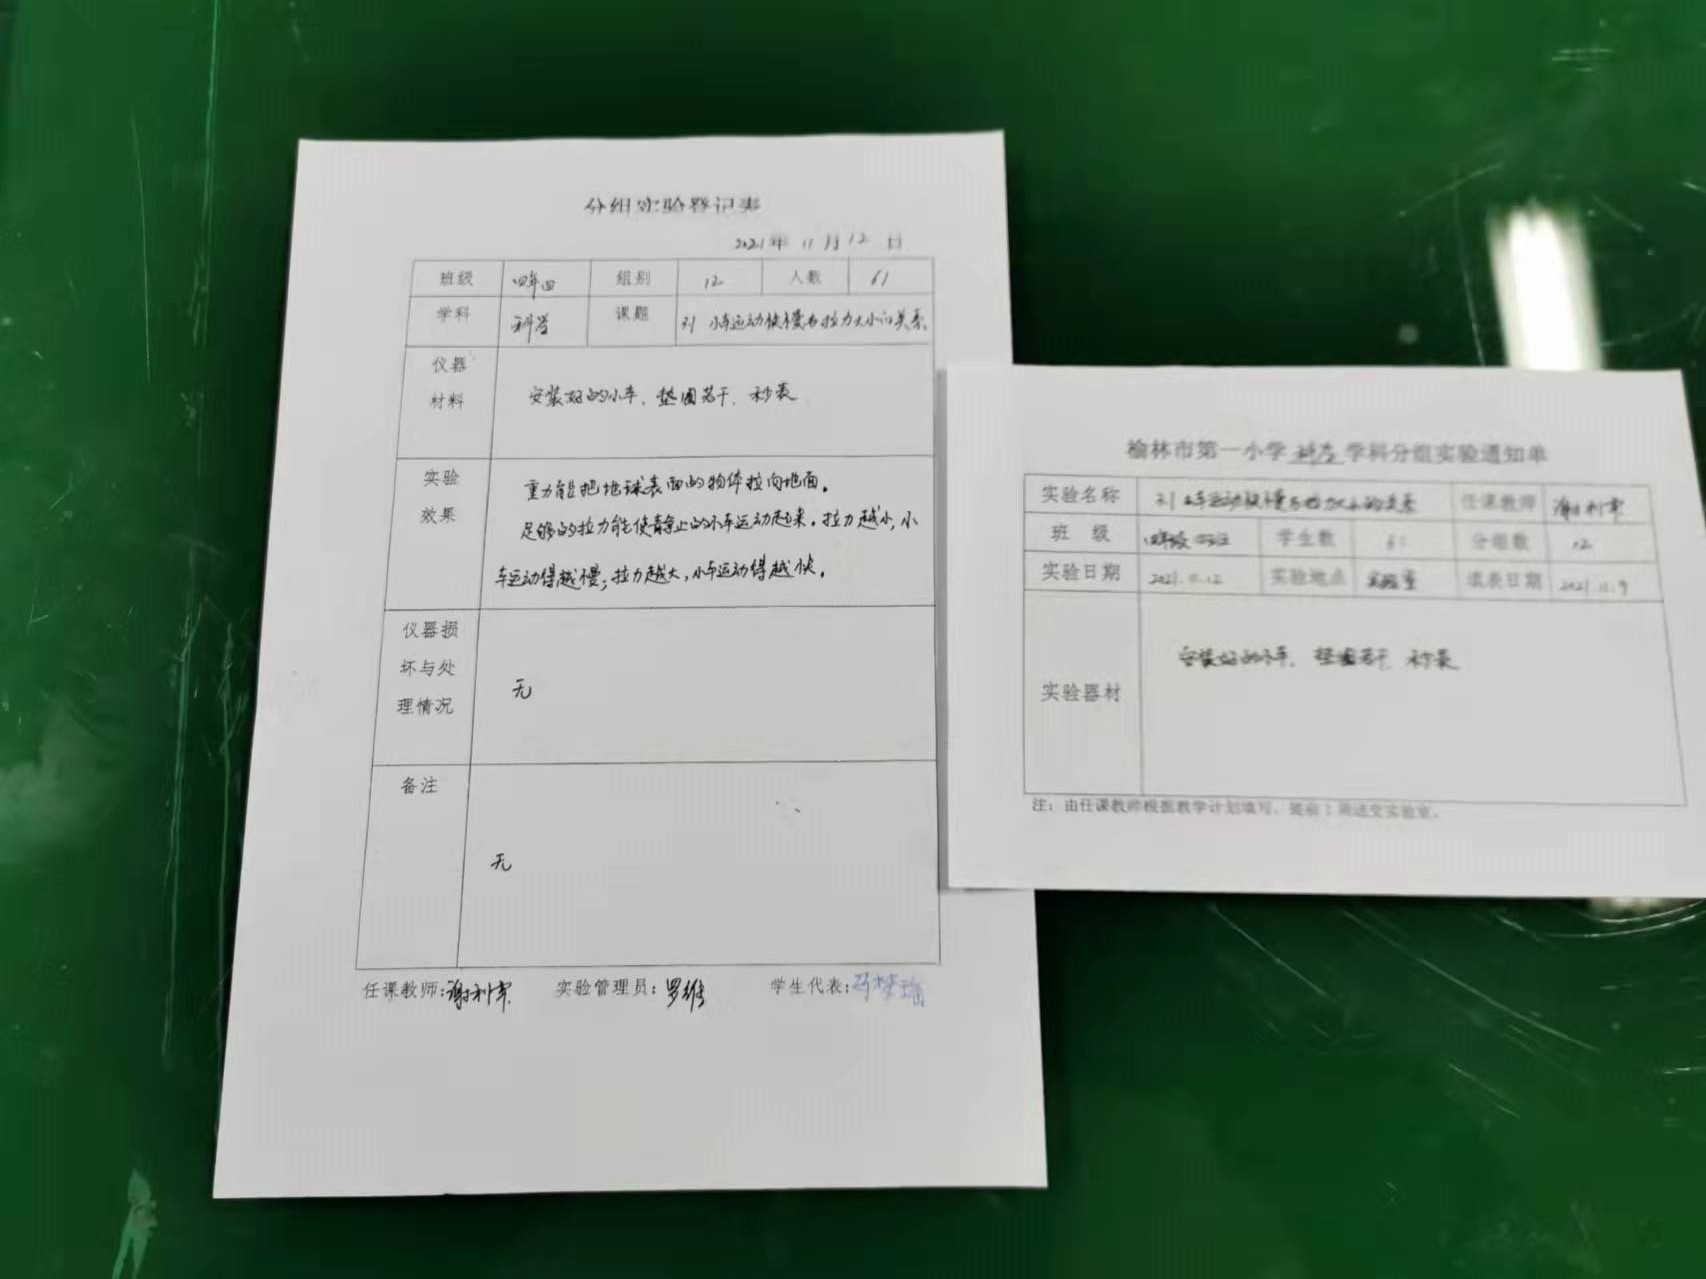 分组实验登记表
2021年 11月12日
班级 四年四 组别 12 人数 61
学科 科学 课题 小车运动快慢与拉力大小的关系
仪器
材料
安装好的小车、垫圈若干、秒表
实验
效果
重力能把地球表面的物体拉向地面。
足够的拉力能使静止的小车运动起来。拉力越小,小
车运动得越慢;拉力越大,小车运动得越快。
仪器损
坏与处
理情况
无
备注
无
任课教师:谢利军 实验管理员:罗维 学生代表:
榆林市第一小学科学学科分组实验通知单
实验名称 小车运动快慢与拉力大小的关系 任课教师 谢利军
班 级 四年级 学生数 61 分组数 12
实验日期 2021.11.12 实验地点 实验室 填表日期 2021.11.9
实验器材
安装好的小车、垫圈若干、秒表
注:由任课教师根据教学计划填写,提前1周送交实验室。